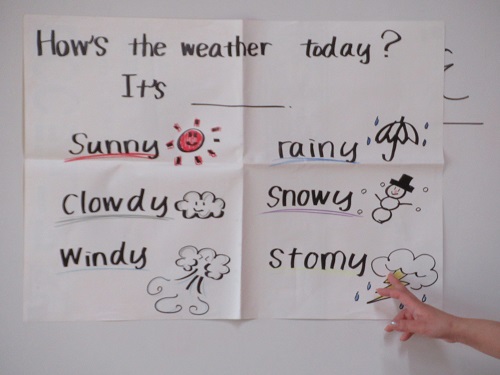 How's the weather today?
It's ________.
Sunny
rainy
Clowdy
Snowy
Windy
Stomy